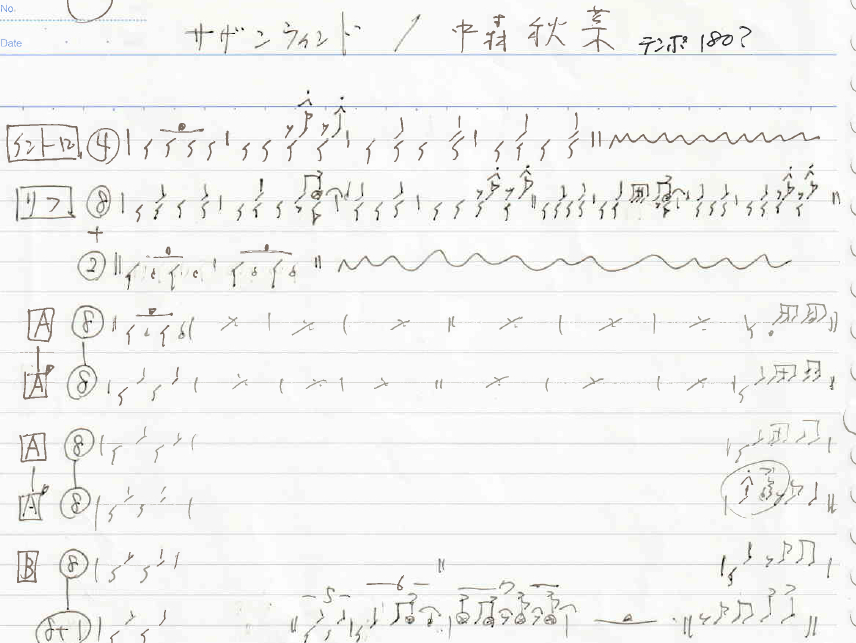 No.
サザンウィンド / 中森秋菜 テンポ180?
Date
イントロ ④
リフ ⑧
+
②
A ⑧
A' ⑧
A ⑧
A' ⑧
B ⑧
5 6 7
8+1